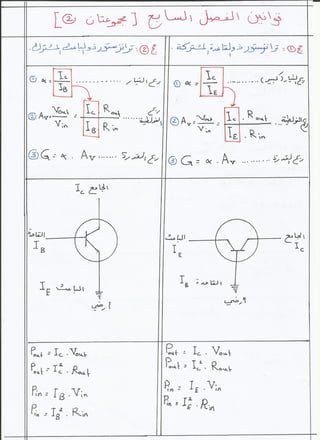 قوانين الفصل السابع [مجموعتان ②]
ج①: ترانزستور ذو القاعدة المشتركة
① α = I_C / I_E ........ ربح التيار (كسر)
② Av = Vout / Vin = I_C . Rout / I_E . Rin ربح الفولطية
③ G = α . Av ........ ربح القدرة
الباعث
I_E
الجامع
I_C
القاعدة I_B
أرضي
Pout = I_C . Vout
Pout = I_C² . Rout
Pin = I_E . Vin
Pin = I_E² . Rin
ج②: ترانزستور ذو الباعث المشترك
① α = I_C / I_B ........ ربح التيار
② Av = Vout / Vin = I_C . Rout / I_B . Rin ربح الفولطية
③ G = α . Av ........ ربح القدرة
الجامع I_C
القاعدة
I_B
الباعث I_E
أرضي
Pout = I_C . Vout
Pout = I_C² . Rout
Pin = I_B . Vin
Pin = I_B² . Rin